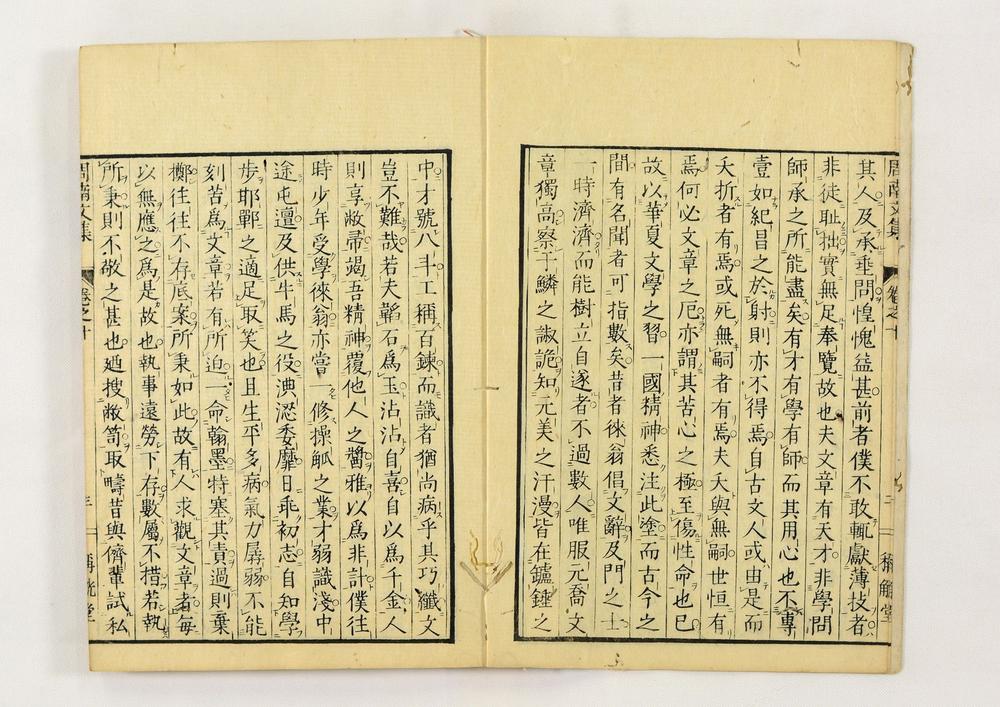 其人及承垂問惶愧益甚前者僕不敢輒獻薄技者
非徒耻拙實無足奉覽故也夫文章有天才非學問
師承之所能盡矣有才有學有師而其用心也不專
壹如紀昌之於射則亦不得焉自古文人或由是而
夭折者有焉或死無嗣者有焉夫夭與無嗣世恒有
焉何必文章之厄亦謂其苦心之極至傷性命也已
故以華夏文學之習一國精神悉注此塗而古今之
間有名聞者可指數矣昔者徠翁倡文辭及門之士
一時濟濟而能樹立自遂者不過數人唯服元喬文
章獨高察于鱗之諔詭知元美之汗漫皆在鑪錘之
中才號八斗工稱百鍊而識者猶尚病乎其巧纖文
豈不難哉若夫韜石為玉沾沾自喜自以為千金人
則享敝帚竭吾精神覆他人之醬雅以為非計僕往
時少年受學徠翁亦嘗一修操觚之業才弱識淺中
途屯邅及供牛馬之役淟涊委靡日乖初志自知學
步邯鄲之適足取笑也且生平多病氣力孱弱不能
刻苦為文章若有所迫一命翰墨特塞其責過則棄
擲往往不存底案所秉如此故有人求觀文章者每
以無應之為是故也執事遠勞下存數屬不措若執
所秉則不敬之甚也廼搜敝笥取疇昔與儕輩試私
周南文集
卷之十
三